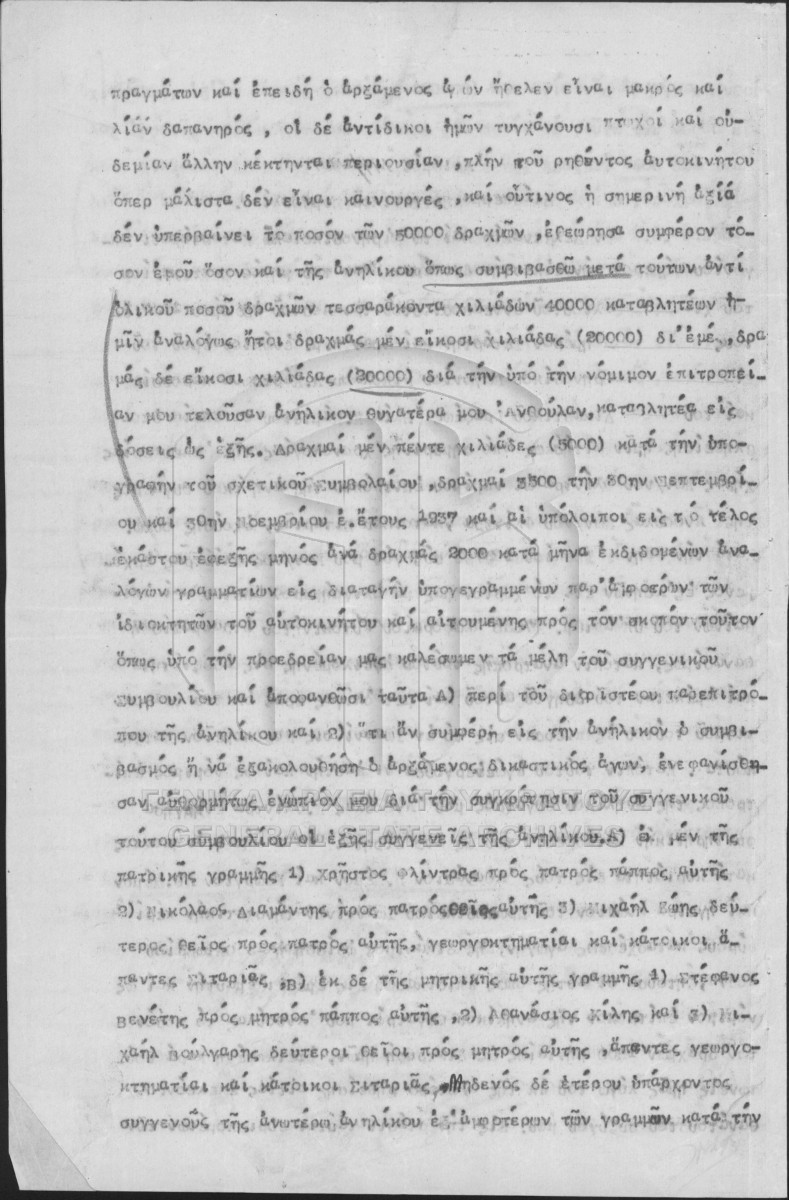 πραγμάτων καί ἐπειδή ὁ ἀρξάμενος ἀγών ἤθελεν εἶναι μακρός καί
λίαν δαπανηρός , οἱ δέ ἀντίδικοι ἡμῶν τυγχάνουσι πτωχοί καί οὐ-
δεμίαν ἄλλην κέκτηνται περιουσίαν ,πλήν τοῦ ρηθέντος αὐτοκινήτου
ὅπερ μάλιστα δέν εἶναι καινουργές ,καί οὗτινος ἡ σημερινή ἀξία
δέν ὑπερβαίνει τό ποσόν τῶν 50000 δραχμῶν ,ἐθεώρησα συμφέρον τό-
σον ἐμοῦ ὅσον καί τῆς ἀνηλίκου ὅπως συμβιβασθῶ μετά τούτων ἀντί
ὁλικοῦ ποσοῦ δραχμῶν τεσσαράκοντα χιλιάδων 40000 καταβλητέων ἡ-
μῖν ἀναλόγως ἤτοι δραχμάς μέν εἴκοσι χιλιάδας (20000) δι'ἐμέ ,δρα
μάς δέ εἴκοσι χιλιάδας (20000) διά τήν ὑπό τήν νόμιμον ἐπιτροπεί-
αν μου τελοῦσαν ἀνήλικον θυγατέρα μου Ἀνθούλαν,καταβλητέα εἰς
δόσεις ὡς ἑξῆς. Δραχμαί μέν πέντε χιλιάδες (5000) κατά τήν ὑπο-
γραφήν τοῦ σχετικοῦ Συμβολαίου ,δραχμαί 3500 τήν 30ην Σεπτεμβρί-
ου καί 30ην Νοεμβρίου ἐ.ἔτους 1937 καί αἱ ὑπόλοιποι εἰς τό τέλος
ἑκάστου ἐφεξῆς μηνός ἀνά δραχμάς 2000 κατά μῆνα ἐκδιδομένων ἀνα-
λόγων γραμματίων εἰς διαταγήν ὑπογεγραμμένων παρ'ἀμφοτέρων τῶν
ἰδιοκτητῶν τοῦ αὐτοκινήτου καί αἰτουμένης πρός τόν σκοπόν τοῦτον
ὅπως ὑπό τήν προεδρείαν μας καλέσωμεν τά μέλη τοῦ συγγενικοῦ
Συμβουλίου καί ἀποφανθῶσι ταῦτα Α) περί τοῦ διοριστέου παρεπιτρό-
που τῆς ἀνηλίκου καί 2) ὅτι ἄν συμφέρῃ εἰς τήν ἀνήλικον ὁ συμβι-
βασμός ἤ νά ἐξακολουθήσῃ ὁ ἀρξάμενος δικαστικός ἀγών, ἐνεφανίσθη-
σαν αὐθορμήτως ἐνώπιόν μου διά τήν συγκρότησιν τοῦ συγγενικοῦ
τούτου συμβουλίου οἱ ἑξῆς συγγενεῖς τῆς ἀνηλίκου.Α) Ἐκ μέν τῆς
πατρικῆς γραμμῆς 1) Χρῆστος Φλίντρας πρός πατρός πάππος αὐτῆς
2) Νικόλαος Διαμάντης πρός πατρός θεῖος αὐτῆς 3) Μιχαήλ Ζώης δεύ-
τερος θεῖος πρός πατρός αὐτῆς, γεωργοκτηματίαι καί κάτοικοι ἅ-
παντες Σιταριᾶς ,Β) ἐκ δέ τῆς μητρικῆς αὐτῆς γραμμῆς 1) Στέφανος
Βενέτης πρός μητρός πάππος αὐτῆς ,2) Ἀθανάσιος Χίλης καί 3) Μι-
χαήλ Βούλγαρης δεύτεροι θεῖοι πρός μητρός αὐτῆς ,ἅπαντες γεωργο-
κτηματίαι καί κάτοικοι Σιταριᾶς, Μηδενός δέ ἑτέρου ὑπάρχοντος
συγγενοῦς τῆς ἀνωτέρω ἀνηλίκου ἐξ'ἀμφοτέρων τῶν γραμμῶν κατά τήν
ΓΕΝΙΚΑ ΑΡΧΕΙΑ ΤΟΥ ΚΡΑΤΟΥΣ
GENERAL STATE ARCHIVES